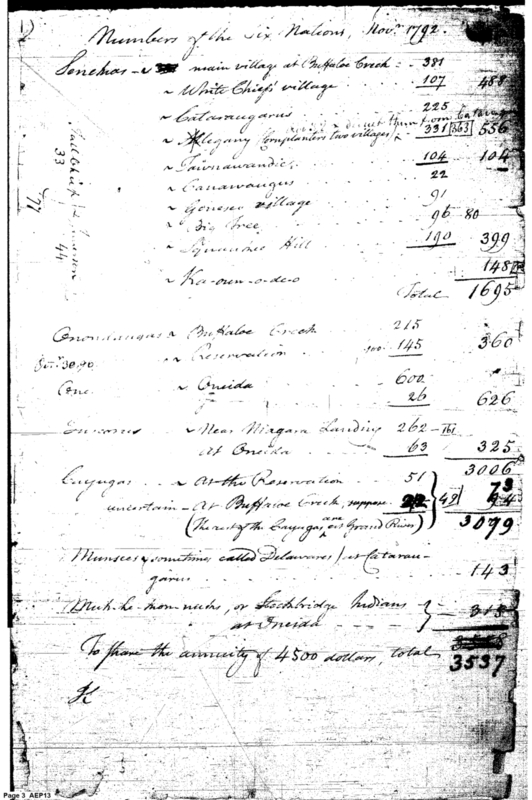 Numbers of the Six Nations, Novr. 1792.
Senekas - main village at Buffaloe Creek - 381
White Chief's village 107 488
Cataraugarus 225
Allegany Complanters two villages 331 363 556
Tawnawandic 104 104
Canawaugus 22
Geneseo village 91
Big Tree 96 80
Squawkee Hill 190 399
Ka-oun-o-de-o 148
Total 1695
Onondaugas Buffaloe Creek 215
Reservation 145 360
One. Oneida 600
26 626
Near Niagara Landing 262 - 161
At Oneida 63 325
3006
Cayugas At the Reservation 51 73
uncertain - At Buffaloe Creek, suppose 22 42
(The rest of the Cayugas are at Grand River) 3079
Munsees (sometimes called Delawares) at Catarau-
garus 143
or Stockbridge Indians
at Oneida 315
To share the annuity of 4500 dollars, total 3537
33
44
77
Page 3 AEP13